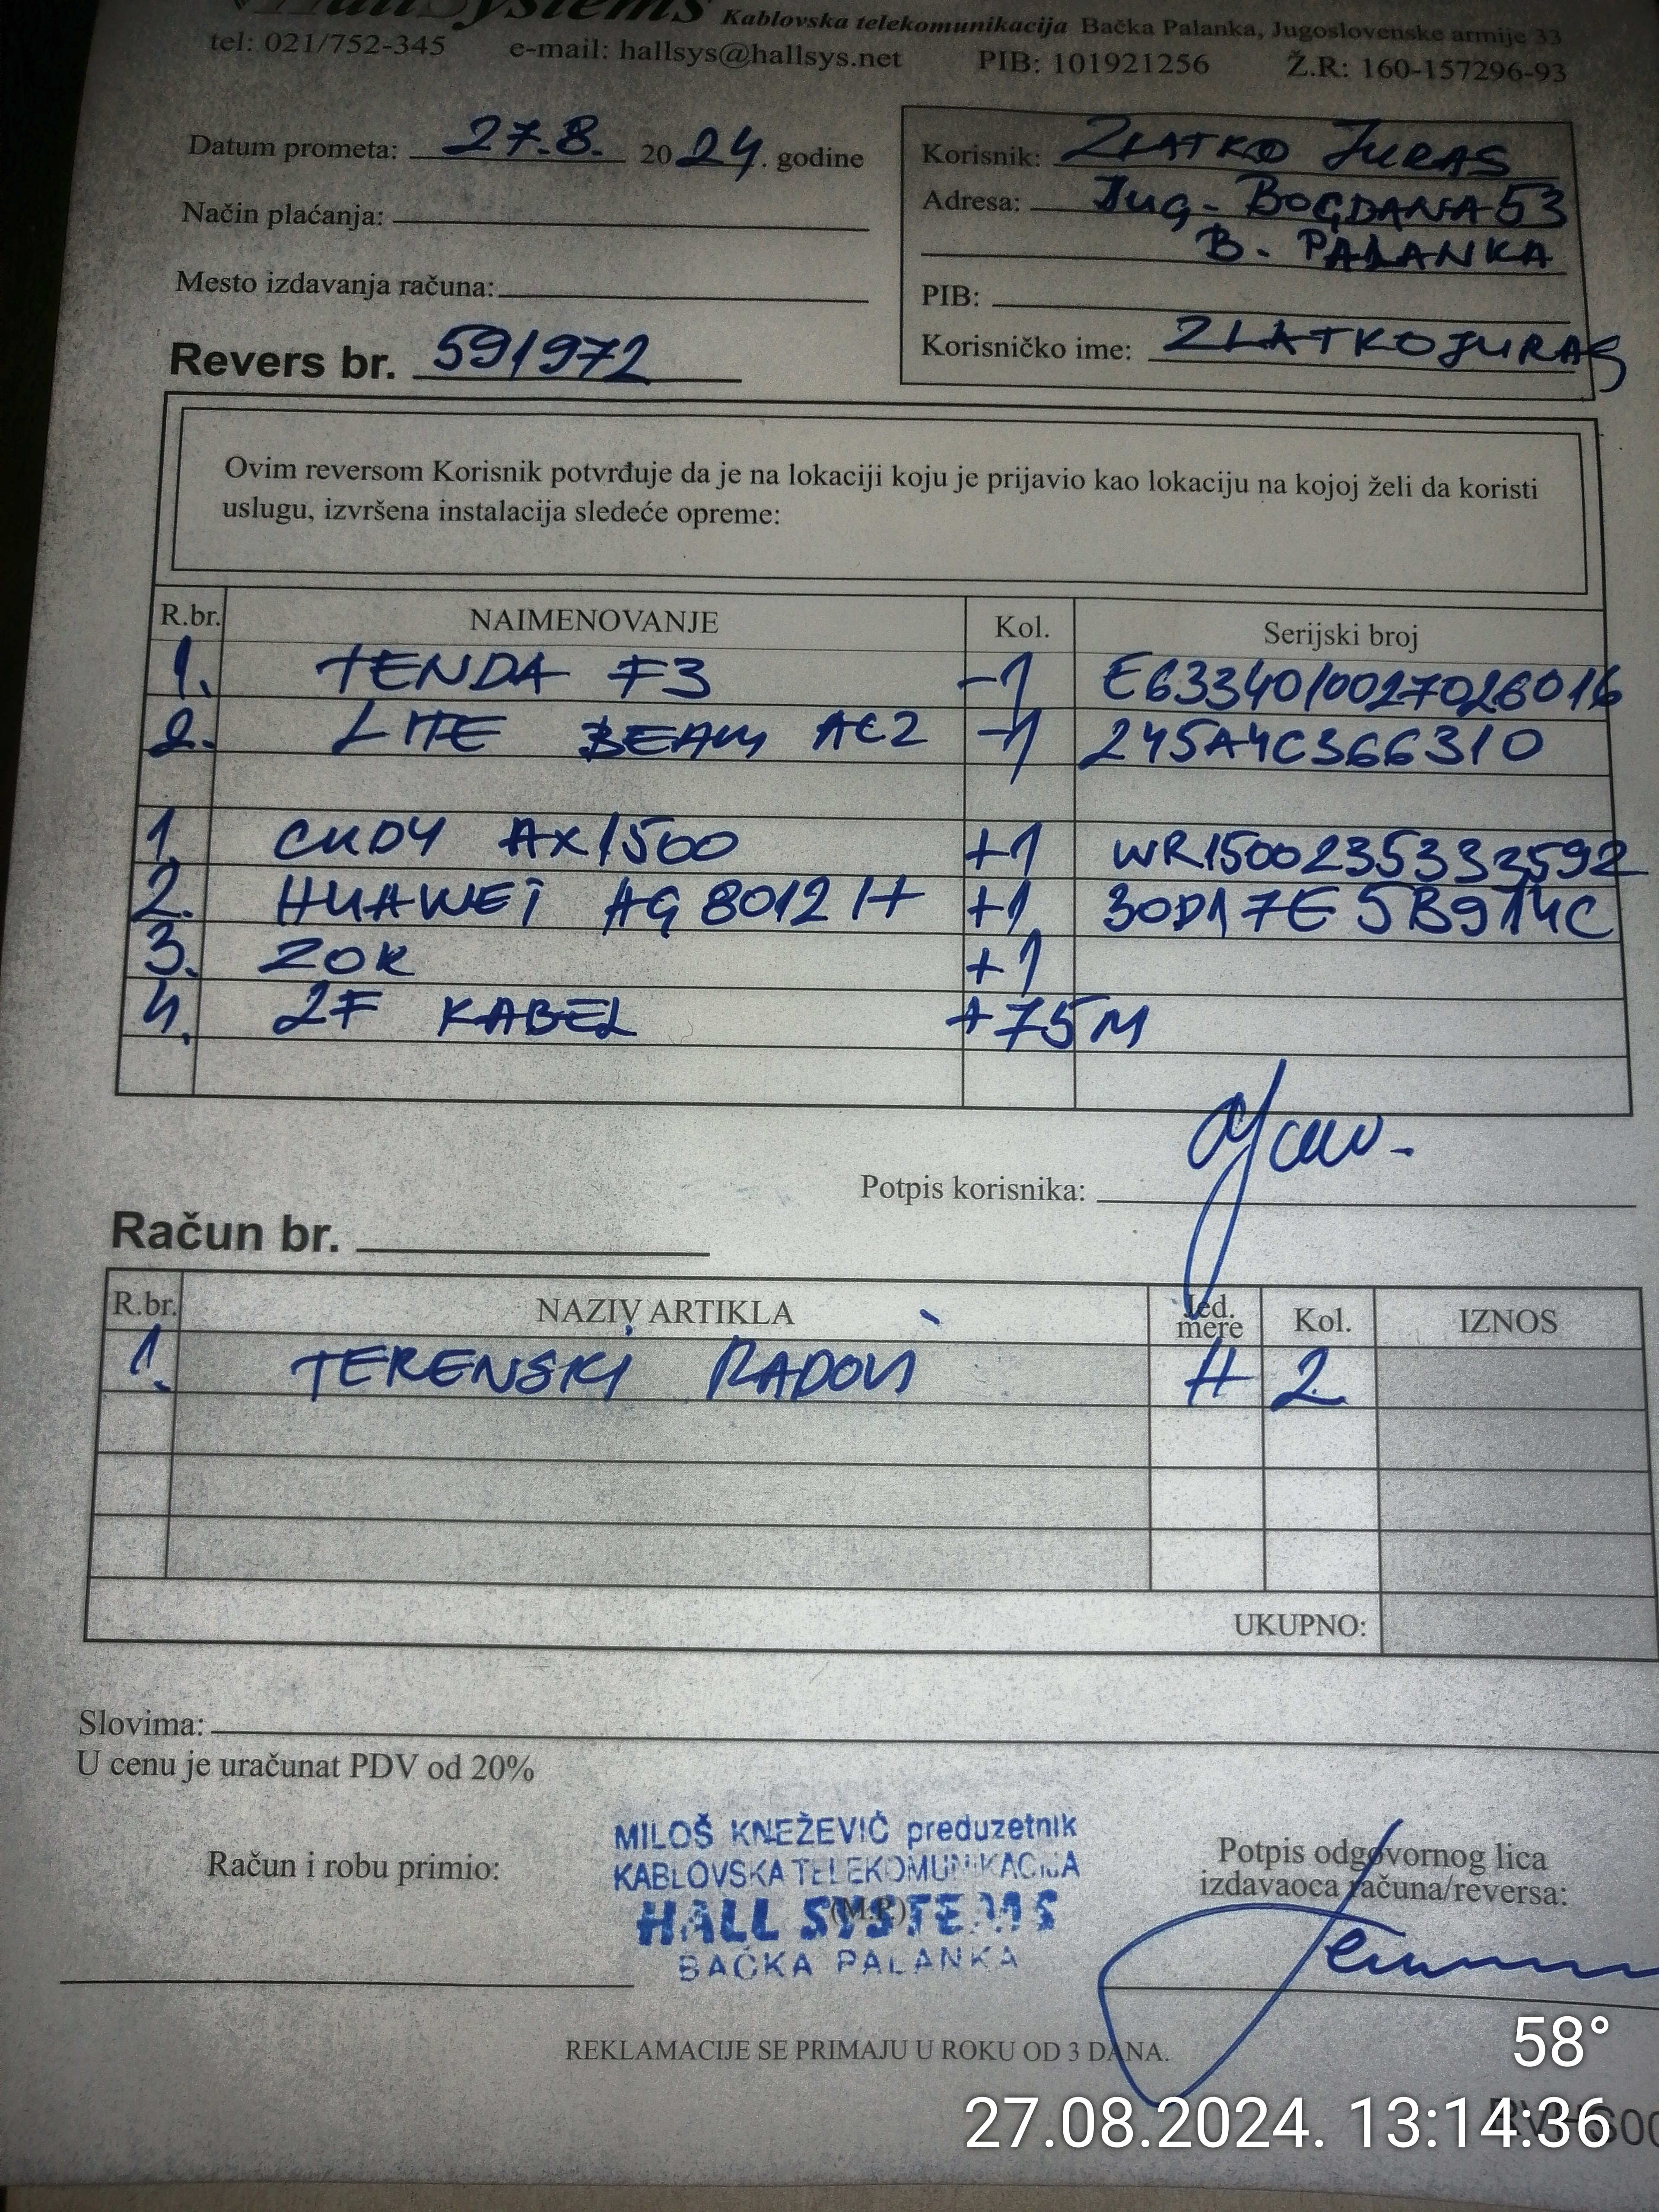 HallSystems Kablovska telekomunikacija Bačka Palanka, Jugoslovenske armije 33
tel: 021/752-345 e-mail: hallsys@hallsys.net PIB: 101921256 Ž.R: 160-157296-93
Datum prometa: 27.8. 2024. godine
Korisnik: ZLATKO JURAS
Adresa: Jug. BOGDANA 53
B. PALANKA
Način plaćanja:
Mesto izdavanja računa:
PIB:
Korisničko ime: ZLATKOJURAS
Revers br. 591972
Ovim reversom Korisnik potvrđuje da je na lokaciji koju je prijavio kao lokaciju na kojoj želi da koristi
uslugu, izvršena instalacija sledeće opreme:
R.br. NAIMENOVANJE Kol. Serijski broj
1. TENDA F3 -1 E6334010027026016
2. LITE BEAM AC2 -1 245A4C366310
1. CUDY AX1500 +1 WR1500235333592
2. HUAWEI HG 8012 H +1 30D17E5B914C
3. ZOK +1
4. 2F KABEL +75M
Potpis korisnika:
Račun br.
R.br. NAZIV ARTIKLA Jed. mere Kol. IZNOS
1. TERENSKI RADOVI H 2
UKUPNO:
Slovima:
U cenu je uračunat PDV od 20%
MILOŠ KNEŽEVIĆ preduzetnik
KABLOVSKA TELEKOMUNIKACIJA
HALL SYSTEMS
(M.P.)
BAČKA PALANKA
Račun i robu primio:
Potpis odgovornog lica
izdavaoca računa/reversa:
REKLAMACIJE SE PRIMAJU U ROKU OD 3 DANA.
58°
27.08.2024. 13:14:36